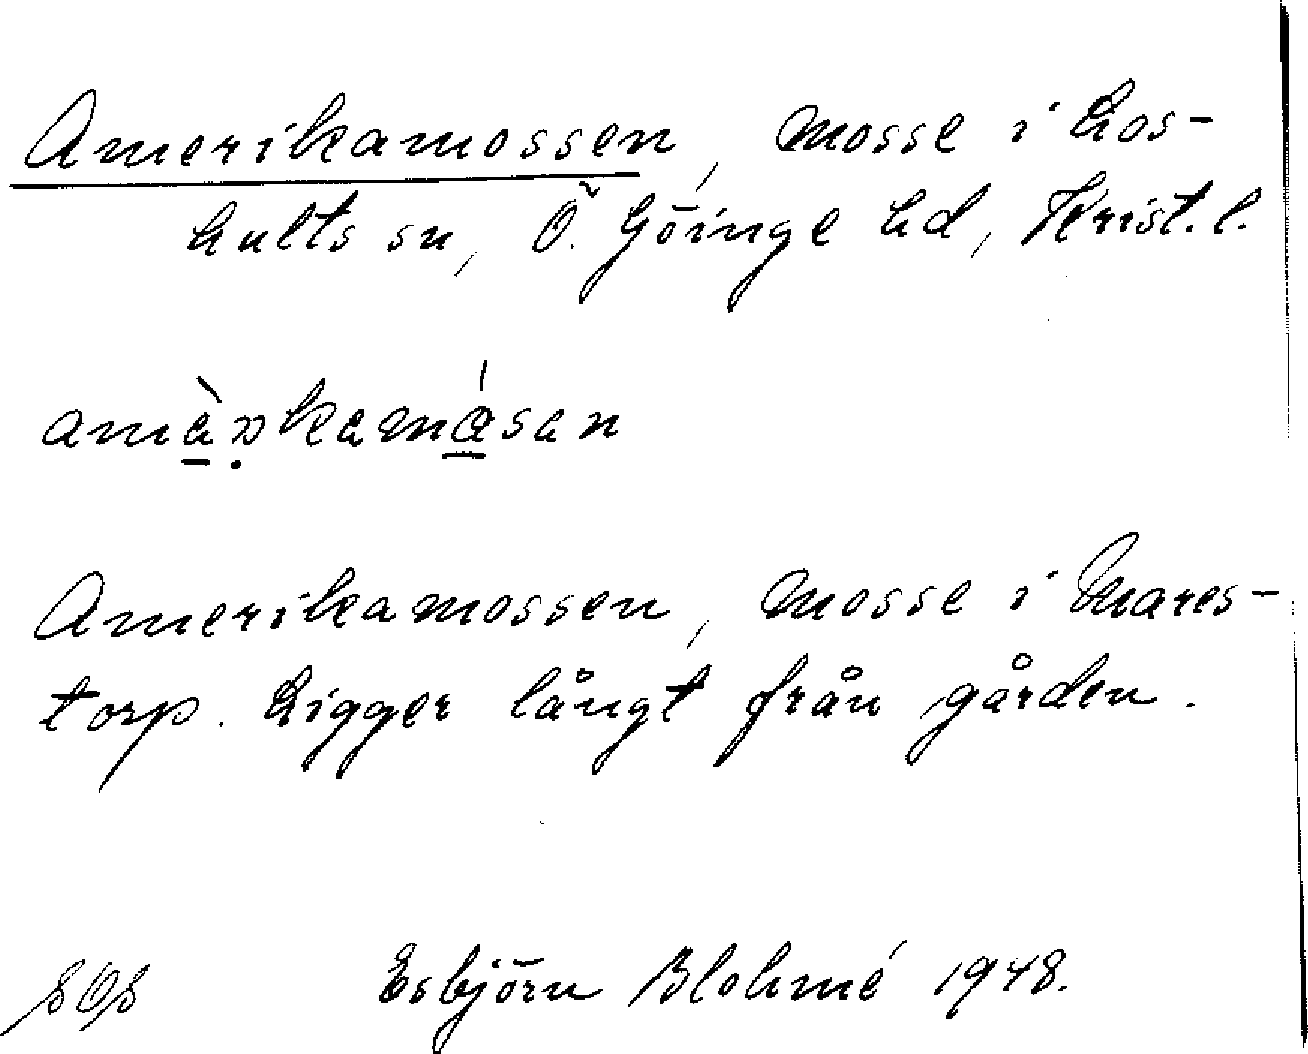 Amerikamossen, mosse i Los-
hults sn, Ö. Göinge hd, Krist. l.
Amerikamossen, mosse i Mares-
torp. Ligger långt från gården.
Esbjörn Blohmé 1948.